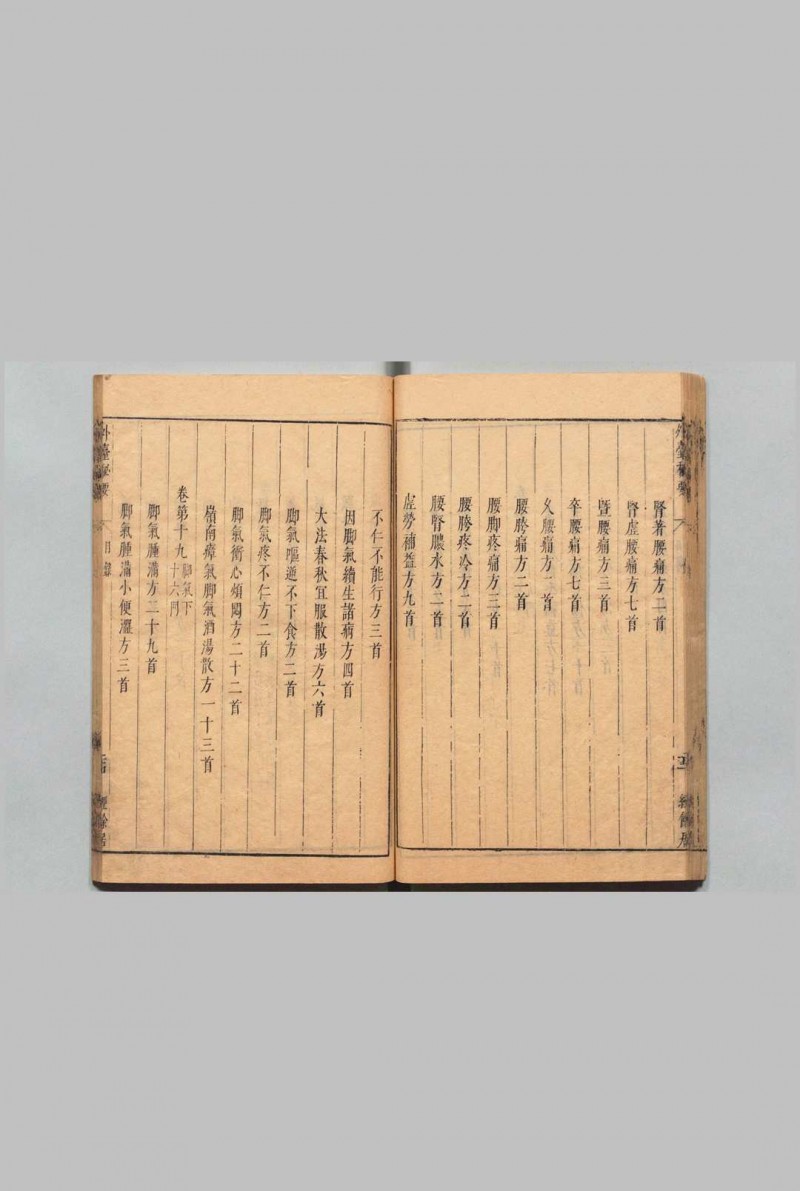 腎著腰痛方二首
腎虛腰痛方七首
䐴腰痛方三首
卒腰痛方七首
久腰痛方二首
腰胯痛方二首
腰脚疼痛方三首
腰胯疼冷方二首
腰腎膿水方二首
虛勞補益方九首
不仁不能行方三首
因脚氣續生諸病方四首
大法春秋宜服散湯方六首
脚氣嘔逆不下食方二首
脚氣疼不仁方二首
脚氣衝心煩悶方二十二首
嶺南瘴氣脚氣酒湯散方一十三首
卷第十九脚氣下十六門
脚氣腫滿方二十九首
脚氣腫滿小便澀方三首
外臺秘要
目錄
經餘居